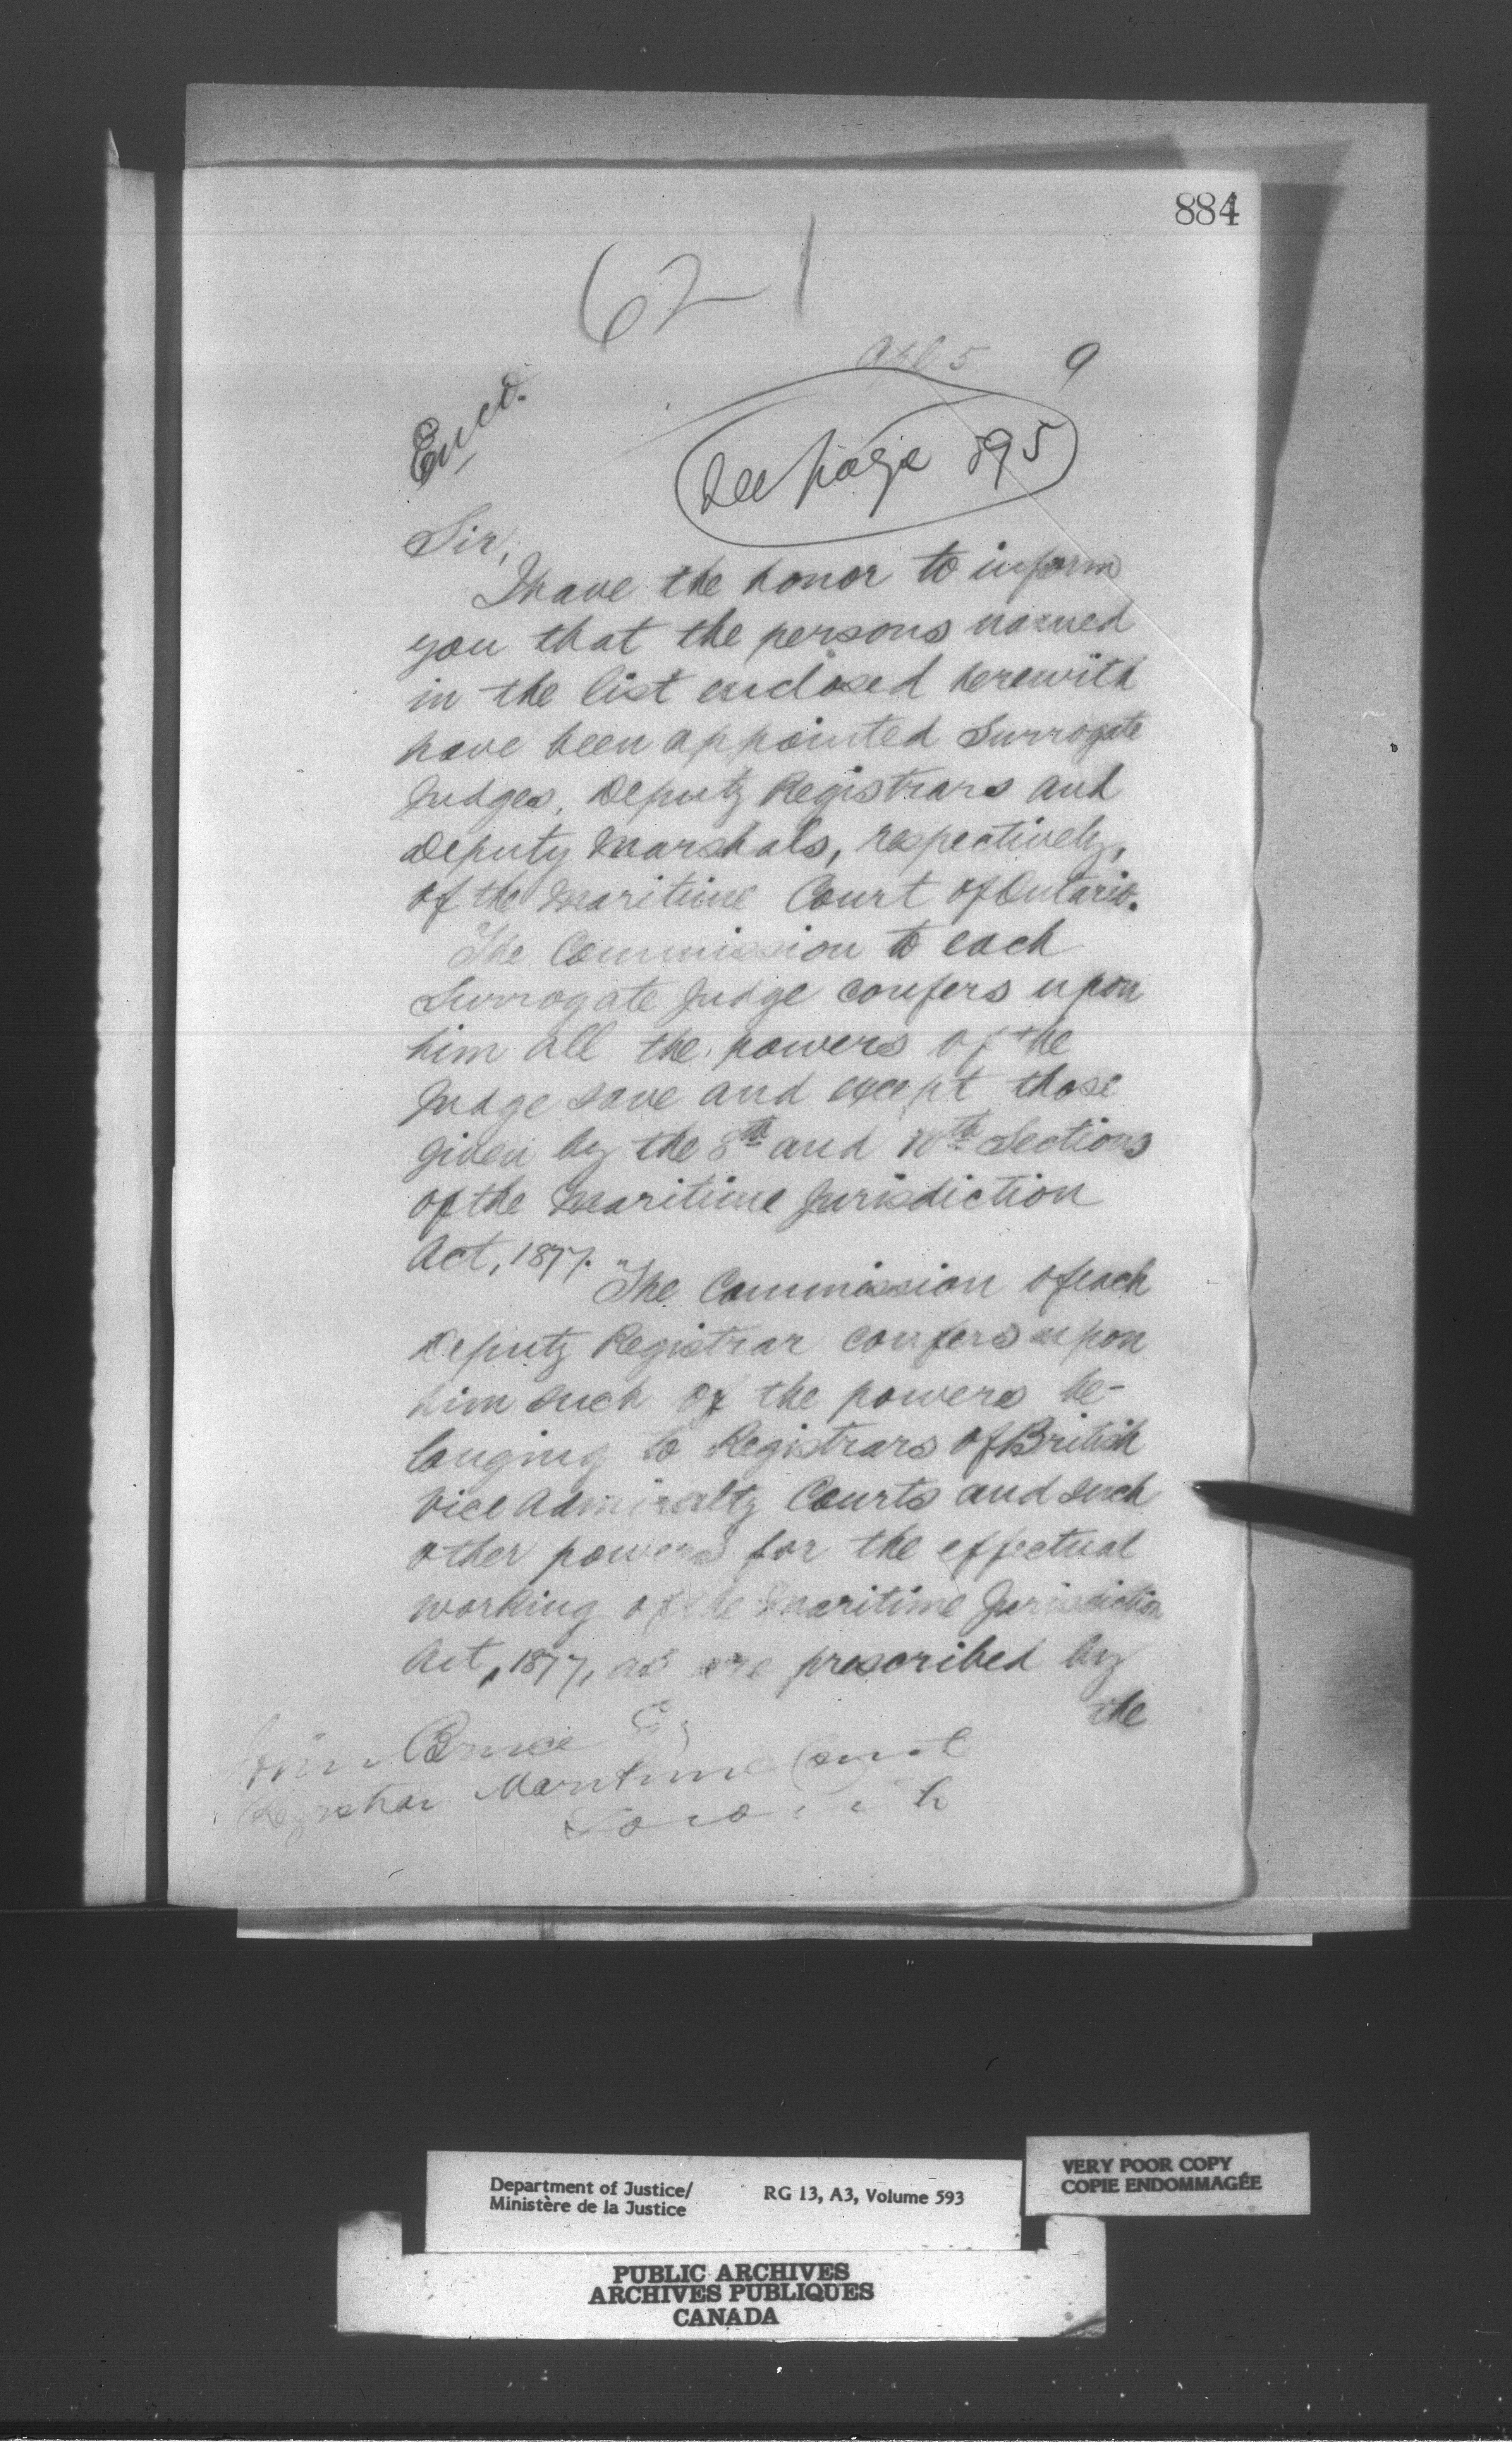 884
621
Apl 5 9
Encd.
See page 895
Sir,
I have the honor to inform
you that the persons named
in the list enclosed herewith
have been appointed Surrogate
Judges, Deputy Registrars and
Deputy Marshals, respectively,
of the Maritime Court of Ontario.
The Commission to each
Surrogate Judge confers upon
him all the powers of the
Judge save and except those
given by the 8th and 10th Sections
of the Maritime Jurisdiction
Act, 1877.
The Commission of each
Deputy Registrar confers upon
him such of the powers be-
longing to Registrars of British
Vice Admiralty Courts and such
other powers for the effectual
working of the Maritime Jurisdiction
Act, 1877, as are prescribed by
the
John Bruce Esq
Registrar Maritime Court
Department of Justice/
Ministère de la Justice
RG 13, A3, Volume 593
VERY POOR COPY
COPIE ENDOMMAGÉE
PUBLIC ARCHIVES
ARCHIVES PUBLIQUES
CANADA